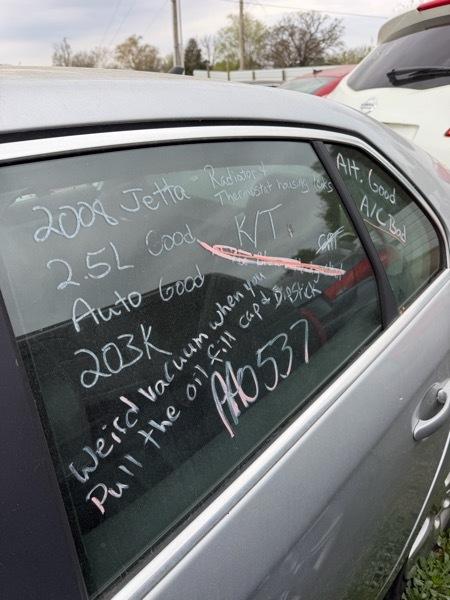 2008 Jetta - Radiator &
Thermostat housing leaks
2.5L Good K/T
Auto Good
203K
Weird vacuum when you
Pull the oil fill cap & Dipstick
PA0537
Alt. Good
A/C Bad